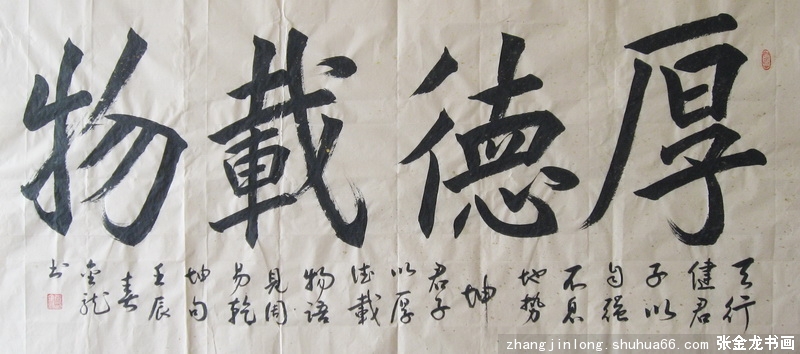 厚德載物
天行
健君
子以
自强
不息
地勢
坤
君子
以厚
德載
物語
見周
易乾
坤句
壬辰
春
金龙
书
zhangjinlong.shuhua66.com 张金龙书画